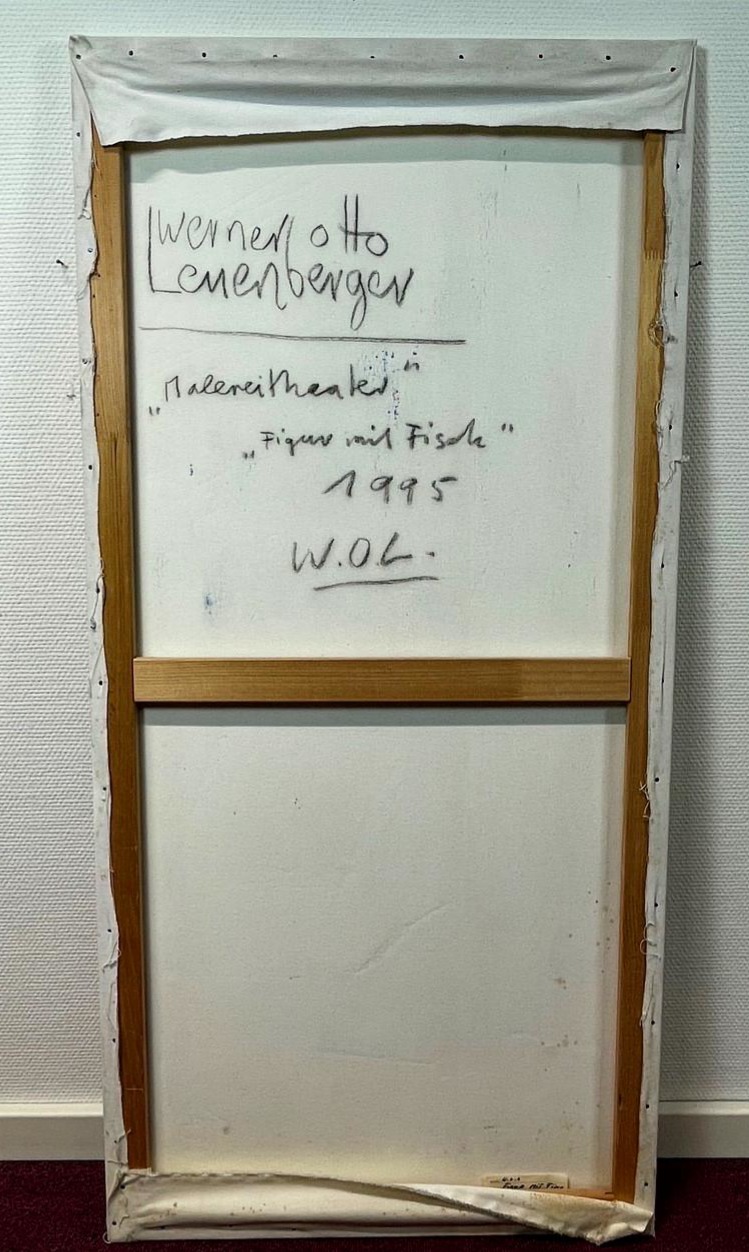 Werner Otto
Leuenberger
„Malereitheater"
„Figur mit Fisch"
1995
W.O.L.